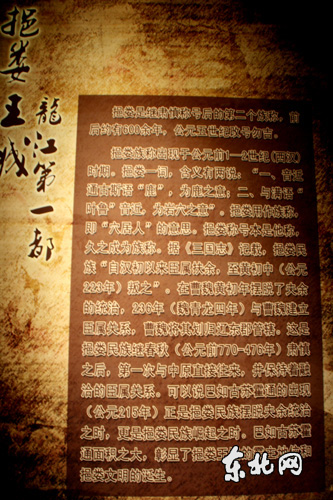 挹娄王城
龍江第一都
挹娄是继肃慎称号后的第二个族称，前
后约有600余年，公元五世纪改号勿吉。
挹娄族称出现于公元前1—2世纪（西汉）
时期。挹娄一词，含义有两说：“一、音近
通古斯语“鹿”，为鹿之意；二、与满语“
叶鲁”音近，为岩穴之意”。挹娄用作族称，
即“穴居人”的意思。挹娄称号本是他称，
久之成为族称。据《三国志》记载，挹娄民
族“自汉初以来臣属夫余，至黄初中（公元
223年）叛之”。在曹魏黄初年摆脱了夫余
的统治，236年（魏青龙四年）与曹魏建立
臣属关系，曹魏将其划归辽东郡管辖。这是
挹娄民族继春秋（公元前770-476年）肃慎
之后，第一次与中原直接往来，并保持着融
洽的臣属关系。可以说巴如古苏霍通的出现
（公元215年）正是挹娄民族摆脱夫余统治
之时，更是挹娄民族崛起之时。巴如古苏霍
通面积之大，彰显了挹娄王
挹娄文明的诞生。
东北网